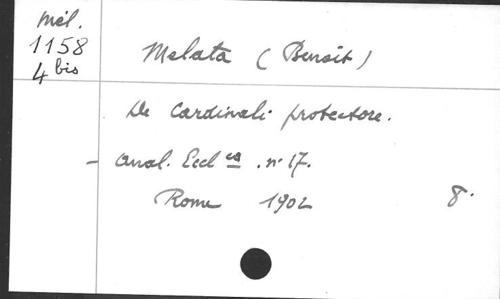 Mél.
1158
4 bis
Melata (Benoit)
De Cardinali protectore.
- Anal. Eccl ca. n° 17.
Rome 1902 8°.